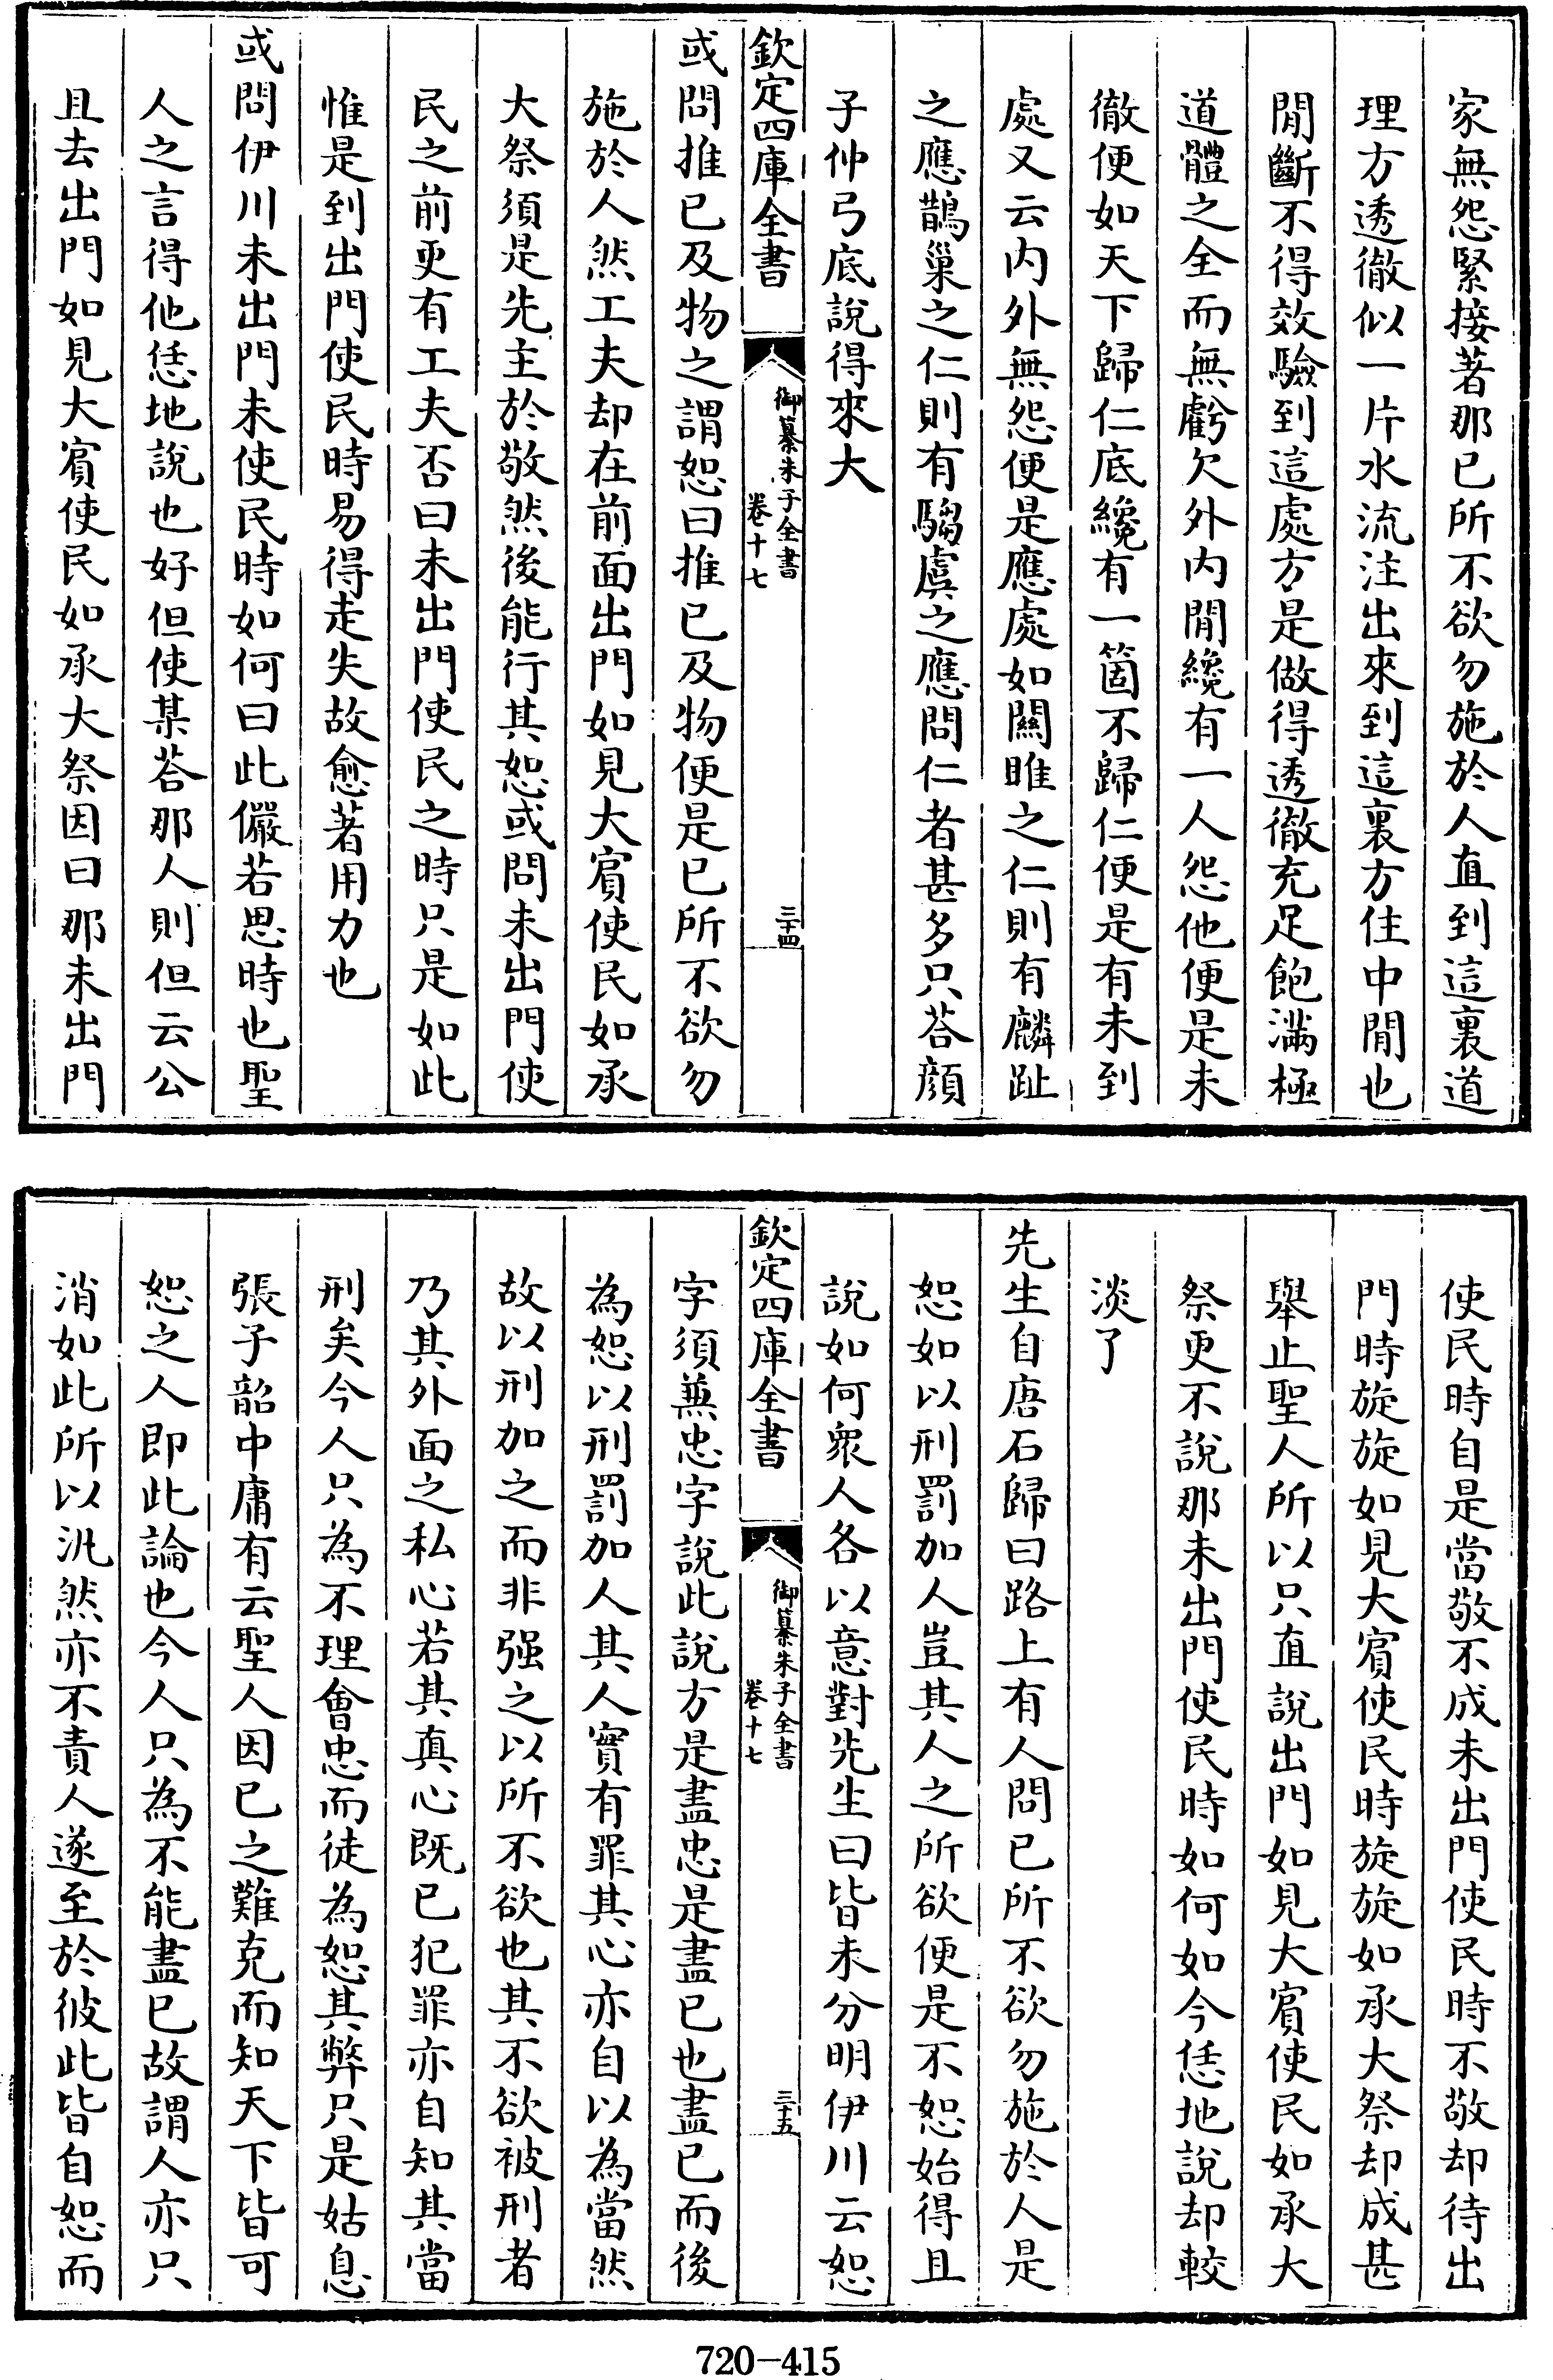 家無怨緊接著那已所不欲勿施於人直到這裏道
理方透徹似一片水流注出來到這裏方住中閒也
閒斷不得效驗到這處方是做得透徹充足飽滿極
道體之全而無虧欠外内閒纔有一人怨他便是未
徹便如天下歸仁底纔有一箇不歸仁便是有未到
處又云内外無怨便是應處如關雎之仁則有麟趾
之應鵲巢之仁則有騶虞之應問仁者甚多只荅顔
子仲弓底說得來大
欽定四庫全書
御纂朱子全書
卷十七
三十四
或問推已及物之謂恕曰推已及物便是已所不欲勿
施於人然工夫却在前面出門如見大賔使民如承
大祭須是先主於敬然後能行其恕或問未出門使
民之前更有工夫否曰未出門使民之時只是如此
惟是到出門使民時易得走失故愈著用力也
或問伊川未出門未使民時如何曰此儼若思時也聖
人之言得他恁地說也好但使某荅那人則但云公
且去出門如見大賔使民如承大祭因曰那未出門
使民時自是當敬不成未出門使民時不敬却待出
門時旋旋如見大賔使民時旋旋如承大祭却成甚
舉止聖人所以只直說出門如見大賔使民如承大
祭更不說那未出門使民時如何如今恁地說却較
淡了
先生自唐石歸曰路上有人問已所不欲勿施於人是
恕如以刑罰加人豈其人之所欲便是不恕始得且
說如何衆人各以意對先生曰皆未分明伊川云恕
欽定四庫全書
御纂朱子全書
卷十七
三十五
字須兼忠字說此說方是盡忠是盡已也盡已而後
為恕以刑罰加人其人實有罪其心亦自以為當然
故以刑加之而非强之以所不欲也其不欲被刑者
乃其外面之私心若其真心既已犯罪亦自知其當
刑矣今人只為不理會忠而徒為恕其弊只是姑息
張子韶中庸有云聖人因已之難克而知天下皆可
恕之人即此論也今人只為不能盡已故謂人亦只
消如此所以汎然亦不責人遂至於彼此皆自恕而
720-415